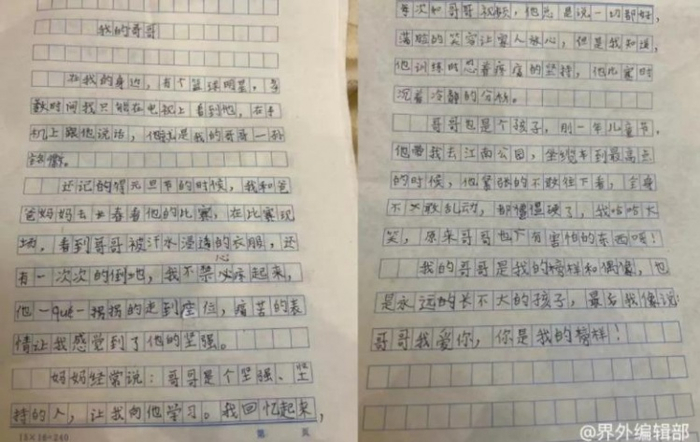 我的哥哥
在我的身边，有个篮球明星，多
数时间我只能在电视上看到他，在手
机上跟他说话，他就是我的哥哥一孙
还记的得元旦节的时候，我和爸
爸妈妈去宜春看他的比赛，在比赛现
场，看到哥哥被汗水浸透的衣服，还
有一次次的倒地，我不禁心疼起来，
他一que一拐拐的走到座位，痛苦的表
情让我感觉到了他的坚强。
妈妈经常说：哥哥是个坚强、坚
持的人，让我向他学习。我回忆起来，
15×16=240
第 页
每次和哥哥视频，他总是说一切都好，
满脸的笑容让家人放心，但是我知道，
他训练时忍着疼痛的坚持，他比赛时
沉着冷静的分析。
哥哥也是个孩子，别一年儿童节，
他带我去江南公园，坐缆车到最高点
的时候，他紧张的不敢往下看，全身
不敢乱动，都僵硬了，我哈哈大
笑，原来哥哥也有害怕的东西呀！
我的哥哥是我的榜样和偶像，也
是永远的长不大的孩子，最后我像说
哥哥我爱你，你是我的榜样！
@界外编辑部